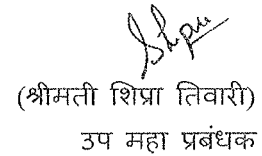 (श्रीमती शिप्रा तिवारी)
उप महा प्रबंधक